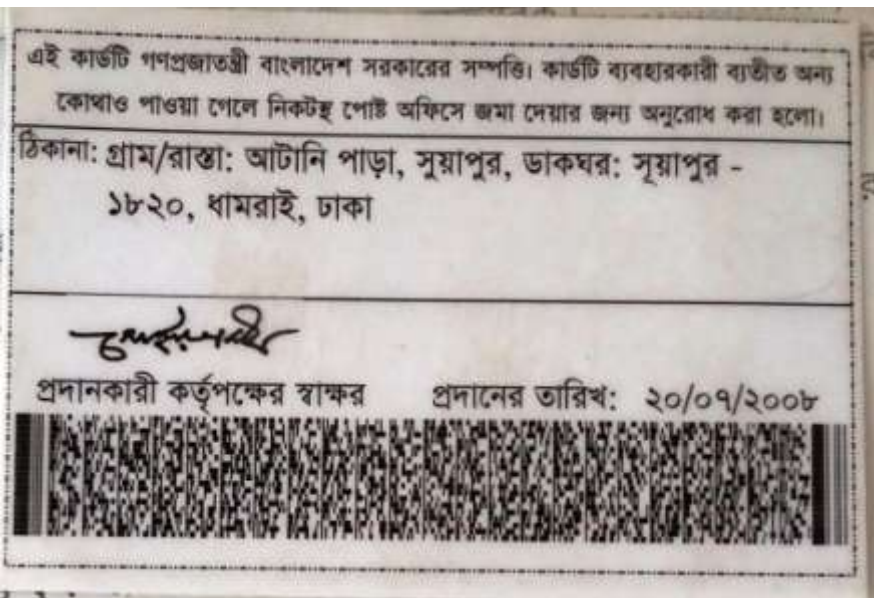 এই কার্ডটি গণপ্রজাতন্ত্রী বাংলাদেশ সরকারের সম্পত্তি। কার্ডটি ব্যবহারকারী ব্যতীত অন্য
কোথাও পাওয়া গেলে নিকটস্থ পোষ্ট অফিসে জমা দেয়ার জন্য অনুরোধ করা হলো।
ঠিকানা: গ্রাম/রাস্তা: আটানি পাড়া, সুয়াপুর, ডাকঘর: সূয়াপুর -
১৮২০, ধামরাই, ঢাকা
প্রদানকারী কর্তৃপক্ষের স্বাক্ষর প্রদানের তারিখ: ২০/০৭/২০০৮